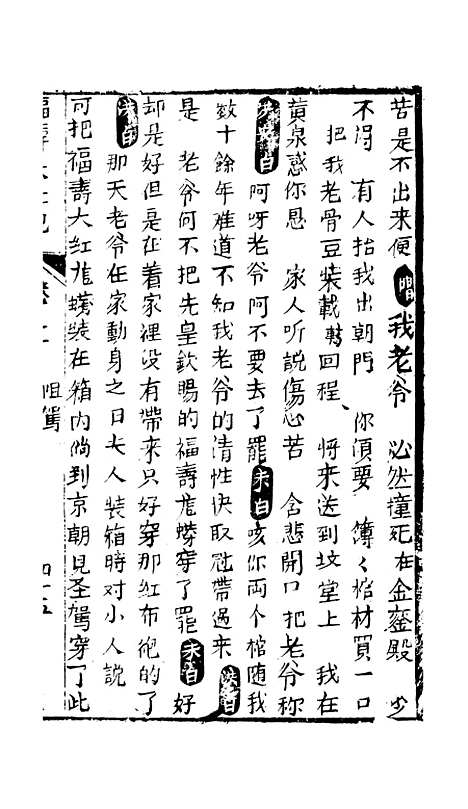 苦是不出来便 唱 我老爷 必然撞死在金銮殿 少
不得 有人抬我出朝門 你須要 簿〻棺材買一口
把我老骨豆裝載轉回程、 将来送到坟堂上 我在
黄泉感你恩 家人听説傷心苦 含悲開口把老爷称
白 阿呀老爷阿不要去了罷 末白 咳你両个棺随我
数十餘年难道不知我老爷的情性快取冠帶過来 白
是 老爷何不把先皇欽賜的福壽龙蟒穿了罷 末白 好
却是好但是在着家裡没有帶来只好穿那红布袍的了
白 那天老爷在家動身之日夫人装箱時对小人説
可把福壽大红龙蟒裝在箱内倘到京朝見圣駕穿了此
卷 阻駕 四十五